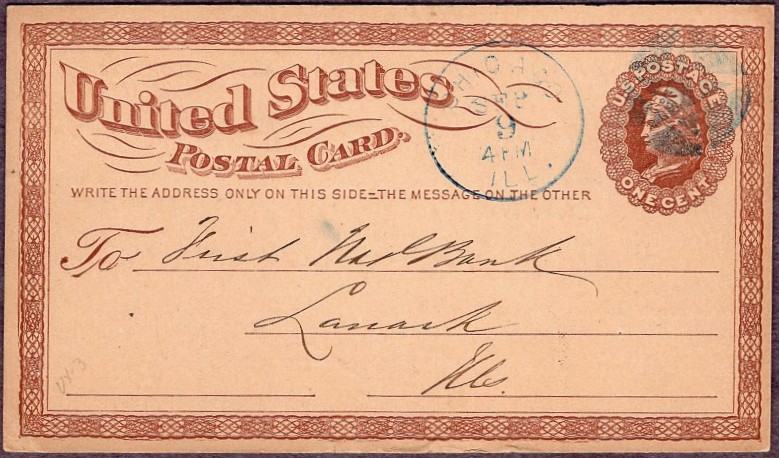 United States
POSTAL CARD.
WRITE THE ADDRESS ONLY ON THIS SIDE=THE MESSAGE ON THE OTHER
CHICAGO
SEP
9
4 PM
ILL.
U.S. POSTAGE
ONE CENT
To First Nal Bank
Lanark
Ills.
UX-3